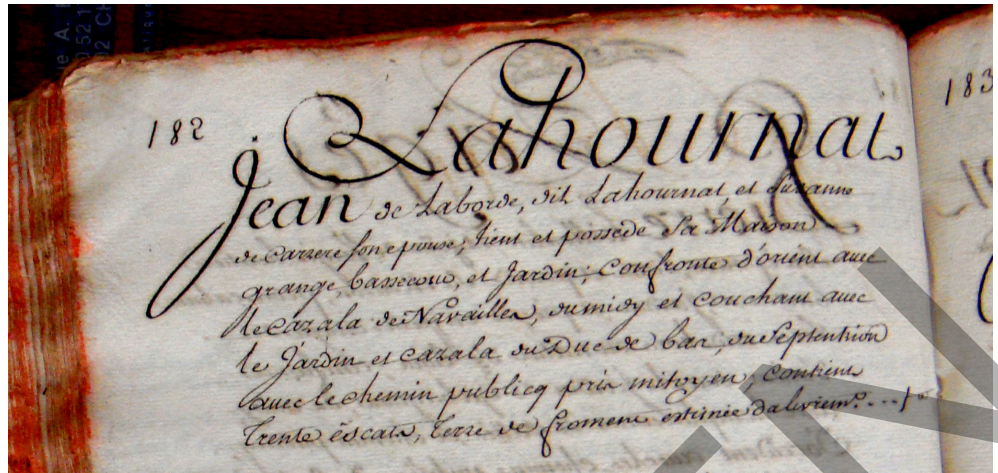 182
Lahournat
Jean de Laborde, dit Lahournat, et Suzanne
de Carrere son epouse, tient et possede sa Maison
grange, bassecour, et Jardin; Confronte d'orient avec
le cazala de Navailles, du midy et couchant avec
le Jardin et cazala du Duc de bar, du Septentrion
avec le chemin publicq pris mitoyen, contient
trente escats, terre de froment estimée
183